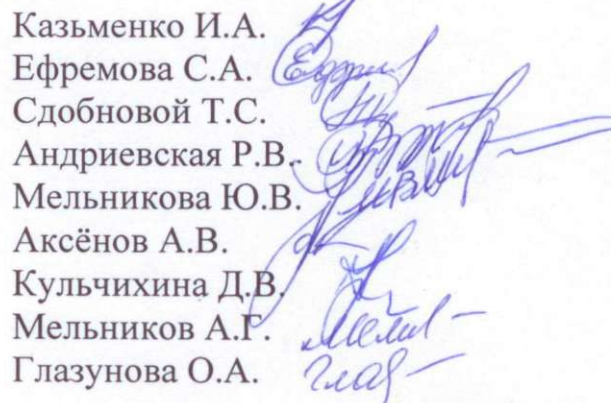 Казьменко И.А.
Ефремова С.А.
Сдобновой Т.С.
Андриевская Р.В.
Мельникова Ю.В.
Аксёнов А.В.
Кульчихина Д.В.
Мельников А.Г.
Глазунова О.А.